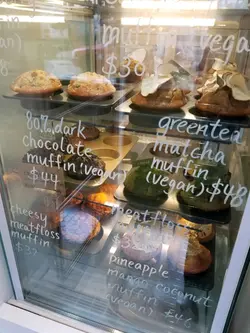 muffin (vegan)
80% dark
chocolate
muffin (vegan)
$44
greentea
matcha
muffin
(vegan) $48
cheesy
meatfloss
muffin
meatfloss
pineapple
mango coconut
muffin
(vegan) $46